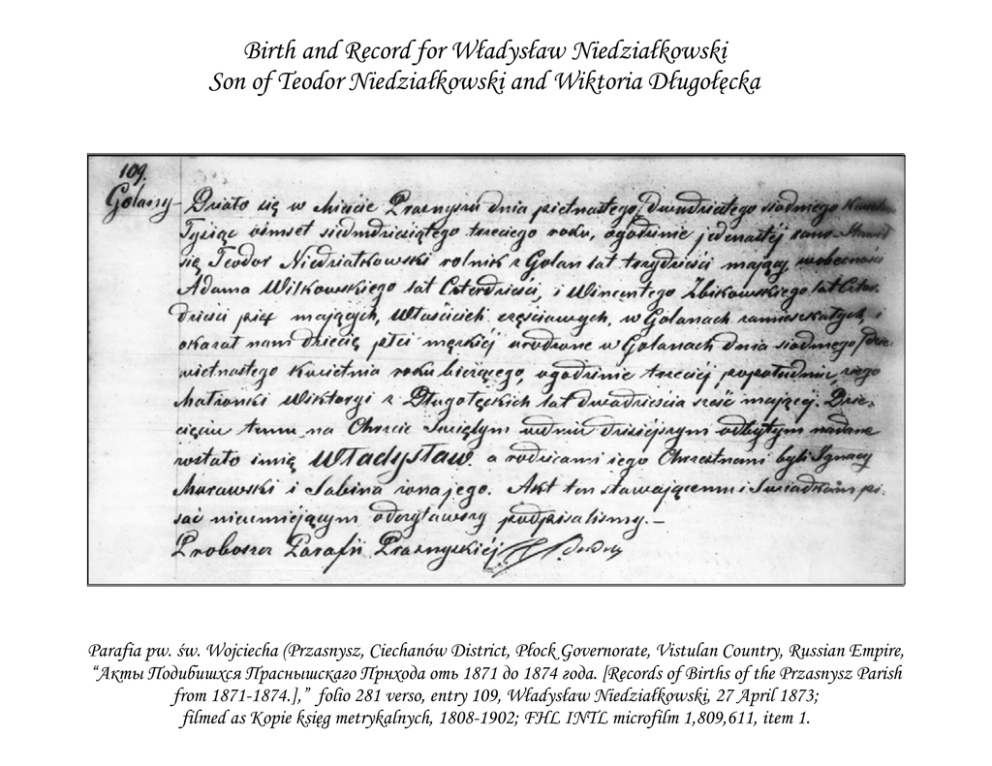 Birth and Record for Władysław Niedziałkowski
Son of Teodor Niedziałkowski and Wiktoria Długołęcka
109.
Golany
Działo się w Mieście Prasnyszu dnia piętnastego/dwudziestego siodmego
Tysiąc ośmset siedmdziesiątego trzeciego roku, ogodzinie jedenastej rano
się Teodor Niedziałkowski rolnik z Golan lat trzydzieści mający, wobecności
Adama Wilkowskiego lat Czterdzieści, i Wincentego Zbikowskiego lat Czter-
dzieści pięć mających, Właścicieli częściowych, w Golanach zamieszkałych, i
okazał nam dziecię płci męzkiéj urodzone w Golanach dnia siodmego/dzie-
więtnastego Kwietnia roku bieżącego, ogodzinie trzeciéj popołudniu, ziego
Małżonki Wiktoryi z Długołęckich lat dwadzieścia sześć mającej. Dzie-
cięciu temu na Chrzcie Swiętym wdniu dzisiejszym odbytym nadane
zostało imię Władysław. a rodzicami iego Chrzestnemi byli Ignacy
Murawski i Sabina żona jego. Akt ten stawającemu i Swiadkom pi-
sać nieumiejącym odczytawszy podpisalismy.—
Proboszcz Parafii Prasnyskiéj
Parafia pw. św. Wojciecha (Przasnysz, Ciechanów District, Płock Governorate, Vistulan Country, Russian Empire,
“Акты Подибишхся Праснышскаго Прнхода отъ 1871 до 1874 года. [Records of Births of the Przasnysz Parish
from 1871-1874.],” folio 281 verso, entry 109, Władysław Niedziałkowski, 27 April 1873;
filmed as Kopie księg metrykalnych, 1808-1902; FHL INTL microfilm 1,809,611, item 1.